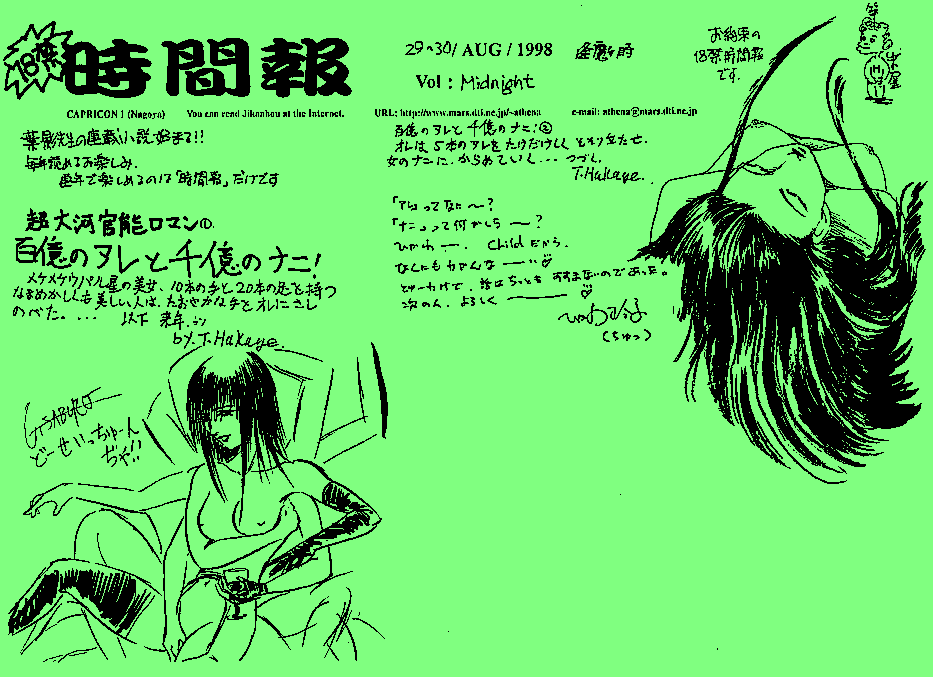 18禁
時間報
29〜30/ AUG / 1998 逢魔ヶ時
Vol : Midnight
CAPRICON 1 (Nagoya) You can read Jikanhou at the Internet.
URL: http://www.mars.dti.ne.jp/~athena e-mail: athena@mars.dti.ne.jp
お約束の
18禁時間報
です。
先生の
小説始まる!!
毎年読めるお楽しみ.
年で楽しめるのは「時間報」だけです
超大河官能ロマン①.
百億のアレと千億のナニ!
メケメケウパル星の美女、10本の手と20本の足を持つ
なまめかしくも美しい人は、たおやかな手をオレにさし
のべた。... 以下 来年.
by. T. Hakaye.
百億のアレと千億のナニ!②
オレは 5本のアレを たけだけしく
女のナニに、からめていく... つづく.
T. Hakaye.
「アレってなに〜?
「ナニ」って何かしら 〜?
ひかわ 〜. Childだから.
なんにもわかんな〜い♡
というわけで、話はちっとも すすまないのであった。
次の人、よろしく ──── ♡
(ちゅっ)
どーせいっちゅーん
ぢゃ!!